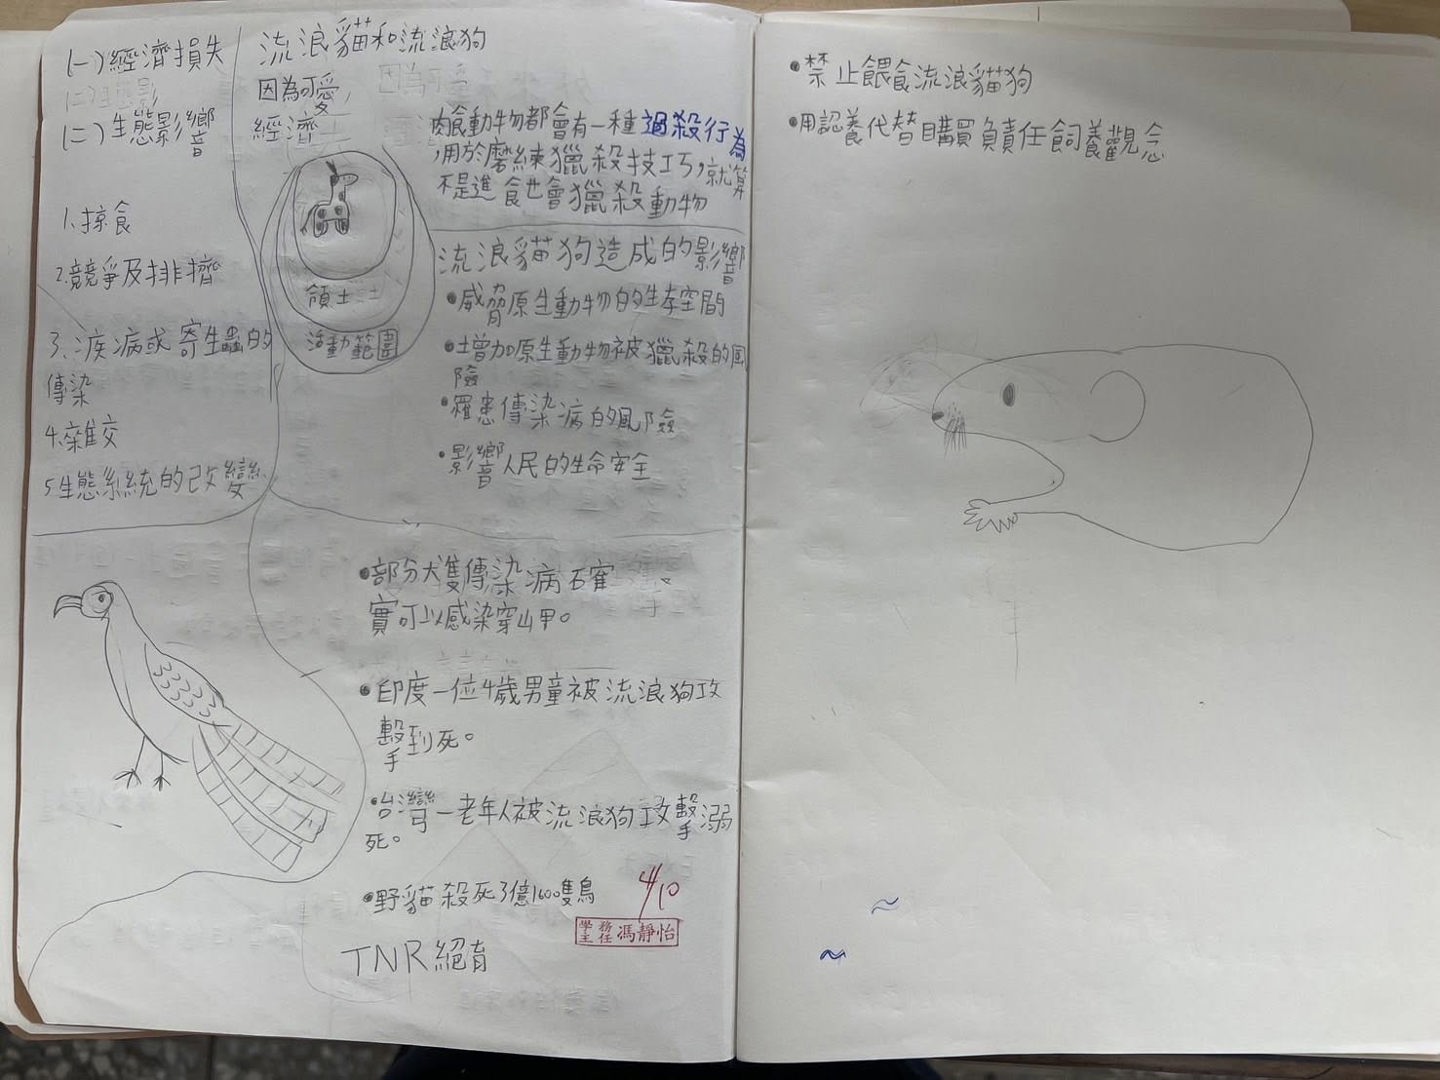 (一)經濟損失
(二)生態影響
1.掠食
2.競爭及排擠
3.疾病或寄生蟲的
傳染
4.雜交
5生態系統的改變
流浪貓和流浪狗
因為可愛,
經濟
領土
活動範圍
肉食動物都會有一種過殺行為
,用於磨練獵殺技巧,就算
不是進食也會獵殺動物
流浪貓狗造成的影響
•威脅原生動物的生存空間
•增加原生動物被獵殺的風
險
•罹患傳染病的風險
•影響人民的生命安全
•部分犬隻傳染病確
實可以感染穿山甲。
•印度一位4歲男童被流浪狗攻
擊到死。
•台灣一老年人被流浪狗攻擊溺
死。
•野貓殺死3億1600隻鳥
4/10
學務主任 馮靜怡
TNR絕育
•禁止餵食流浪貓狗
•用認養代替購買負責任飼養觀念